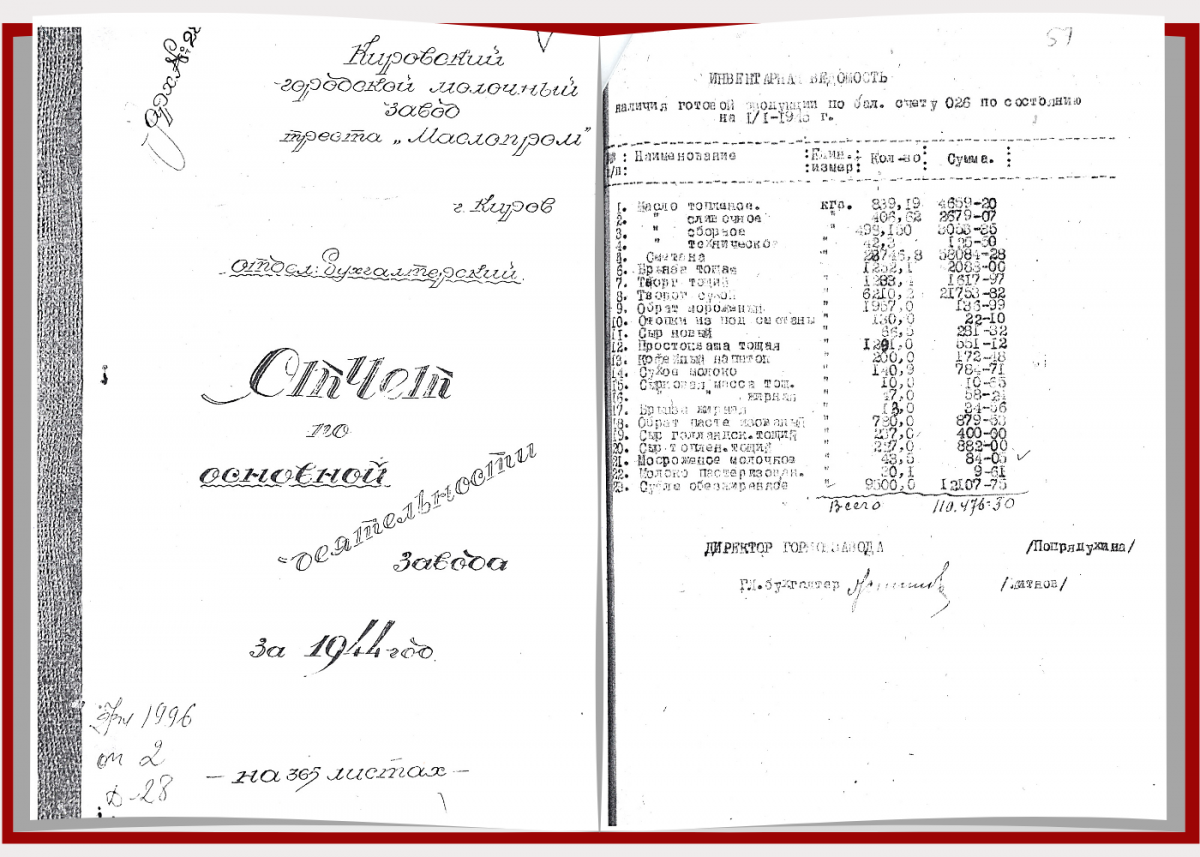 Кировский
городской молочный
завод
треста „Маслопром"
г. Киров
отдел: Бухгалтерский.
Отчет
по
основной
деятельности
завода
за 1944 год.
1996
оп 2
Д-28
– на 365 листах –
57
ИНВЕНТАРНАЯ ВЕДОМОСТЬ
наличия готовой продукции по бал. счету 026 по состоянию
на 1/I-1945 г.
Наименование : Един. : Кол-во : Сумма. :
п/п: :измер:
1. Масло топленое. кгр. 839,19 4659-20
2. " сливочное " 406,62 2679-07
3. " сборное " 499,130 3053-85
4. " техническое " 42,3
5. Сметана " 28746,8 58084-28
6. Брынза тощая " 1252,1 2083-00
7. Творог тощий " 1283,1 1617-97
8. Творог сухой " 6210,2 21753-82
9. Обрат мороженый " 1957,0 136-99
10. Отопки из под сметаны " 130,0 22-10
11. Сыр новый " 86,5 281-82
12. Простокваша тощая " 1201,0 551-12
13. Кофейный напиток " 200,0 172-48
14. Сухое молоко " 140,9 784-71
15. Сырковая масса тощ. " 10,0 10-65
16. " " жирная " 47,0 58-21
17. Брынза жирная " 12,0 34-56
18. Обрат пастеризованый " 780,0 879-63
19. Сыр голландск.тощий " 237,0 400-00
20. Сыр топлен.тощий " 297,0 882-00
21. Мосроженое молочное " 43,5 84-05
22. Молоко пастеризован. " 20,1 9-61
23. Сусле обезжиренное " 9300,0 12107-75
Всего 110.476-30
ДИРЕКТОР ГОРМОЛЗАВОДА /Попрядухина/
Гл.бухгалтер /Латнов/